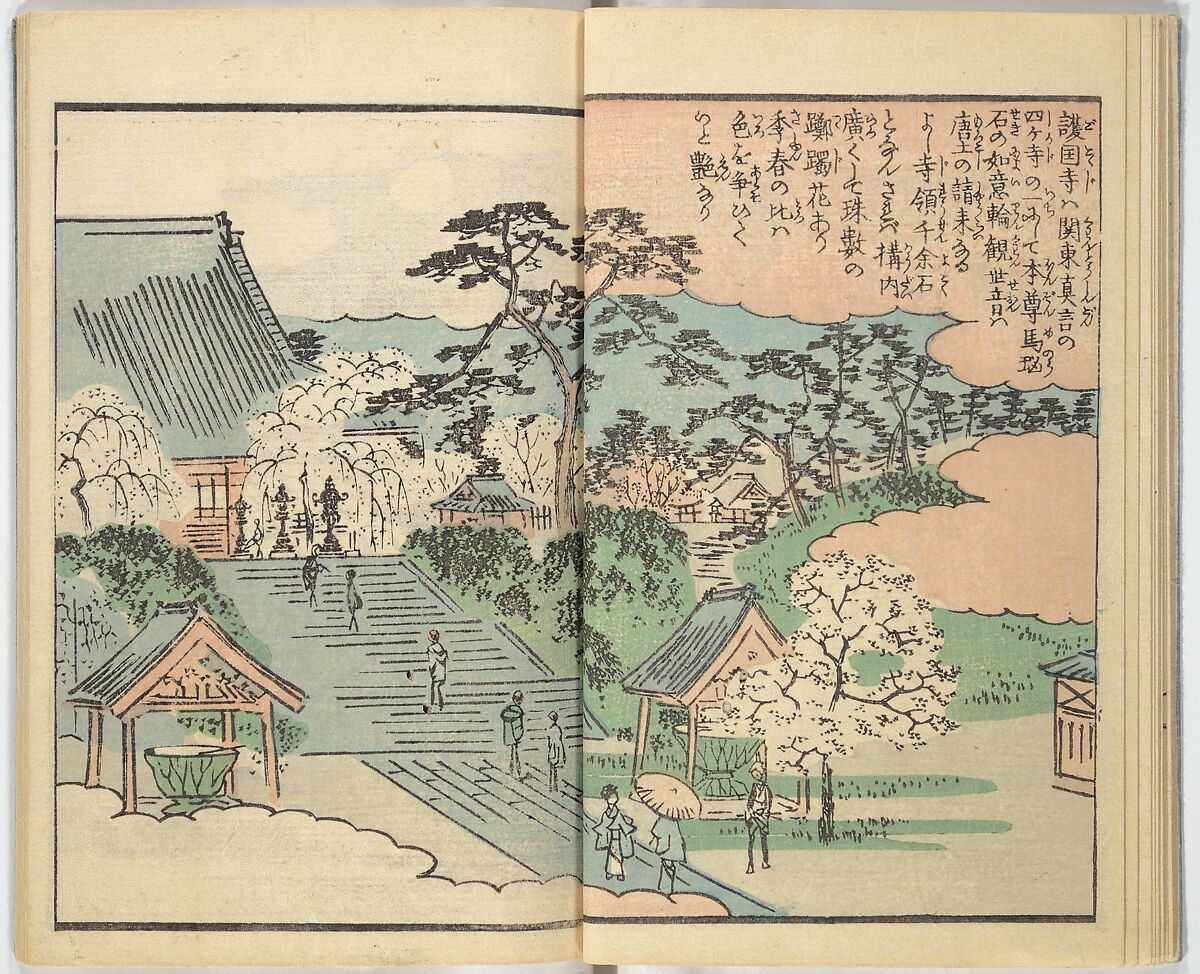 護国寺ハ関東真言の
四ヶ寺の一にして本尊馬瑙
石の如意輪観世音ハ
唐土の請来なる
よし寺領千余石
となんされバ構内
廣くして珠数の
躑躅花あり
季春の比ハ
色を争ひて
いと艶なり